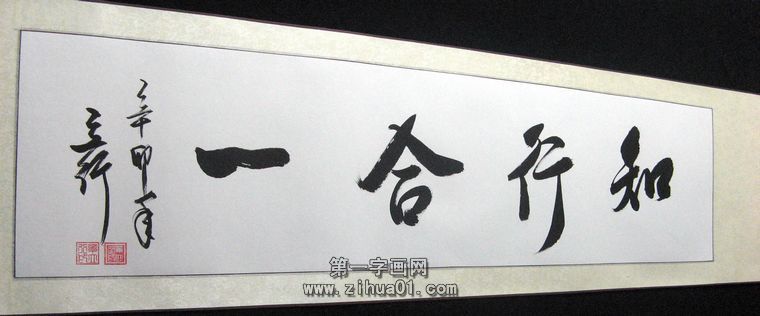 知行合一
辛卯年
第一字画网
www.zihua01.com